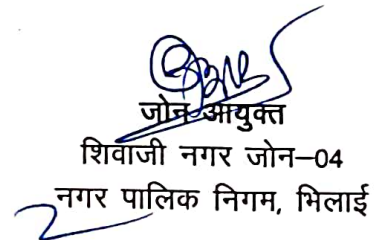 जोन आयुक्त
शिवाजी नगर जोन–04
नगर पालिक निगम, भिलाई